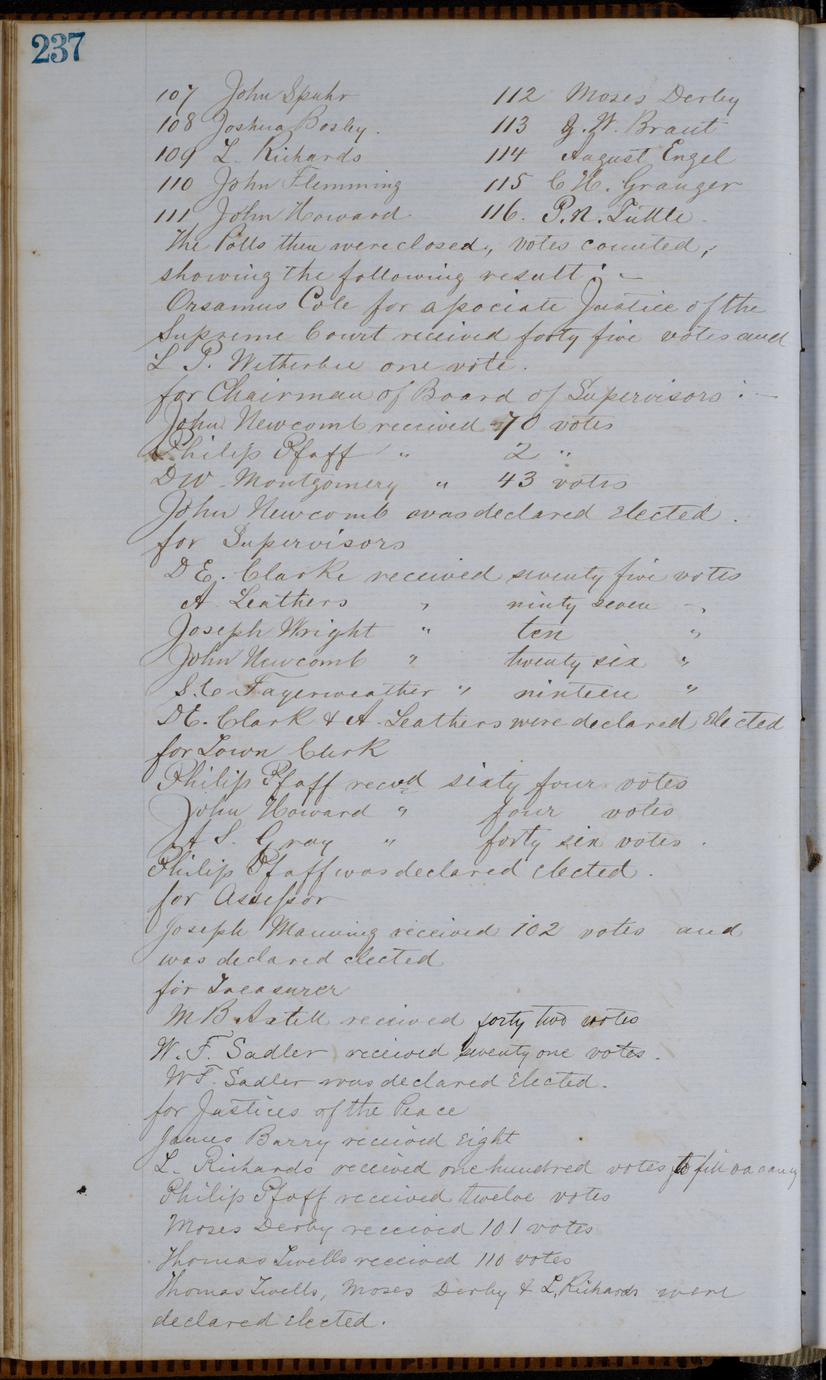 237
107 John Spuhr
108 Joshua Bosby.
109 L. Richards
110 John Flemming
111 John Howard
112 Moses Derby
113 J. W. Braut
114 August Engel
115 C H. Granger
116. P. N. Tuttle
The Polls then were closed, votes counted,
showing the following result :-
Orsamus Cole for associate Justice of the
Supreme Court received forty five votes and
L P. Witherbee one vote.
for Chairman of Board of Supervisors :-
John Newcomb received 70 votes
Philip Pfaff " 2 "
DW Montgomery " 43 votes
John Newcomb was declared elected.
for Supervisors
D E. Clarke received seventy five votes
A Leathers " ninty seven "
Joseph Wright " ten "
John Newcomb " twenty six "
S. C. Fayerweather " nineteen "
DE. Clark & A. Leathers were declared Elected
for Town Clerk
Philip Pfaff recvd sixty four votes
John Howard " four votes
A S. Gray " forty six votes.
Philip Pfaff was declared elected.
for Assessor
Joseph Manning received 102 votes and
was declared elected
for Treasurer
M B. Axtell received forty two votes
W. F. Sadler received seventy one votes.
W F. Sadler was declared Elected.
for Justices of the Peace
James Barry received Eight
L. Richards received one hundred votes to fill vacancy
Philip Pfaff received twelve votes
Moses Derby received 101 votes
Thomas Twells received 110 votes
Thomas Twells, Moses Derby & L, Richards were
declared elected.